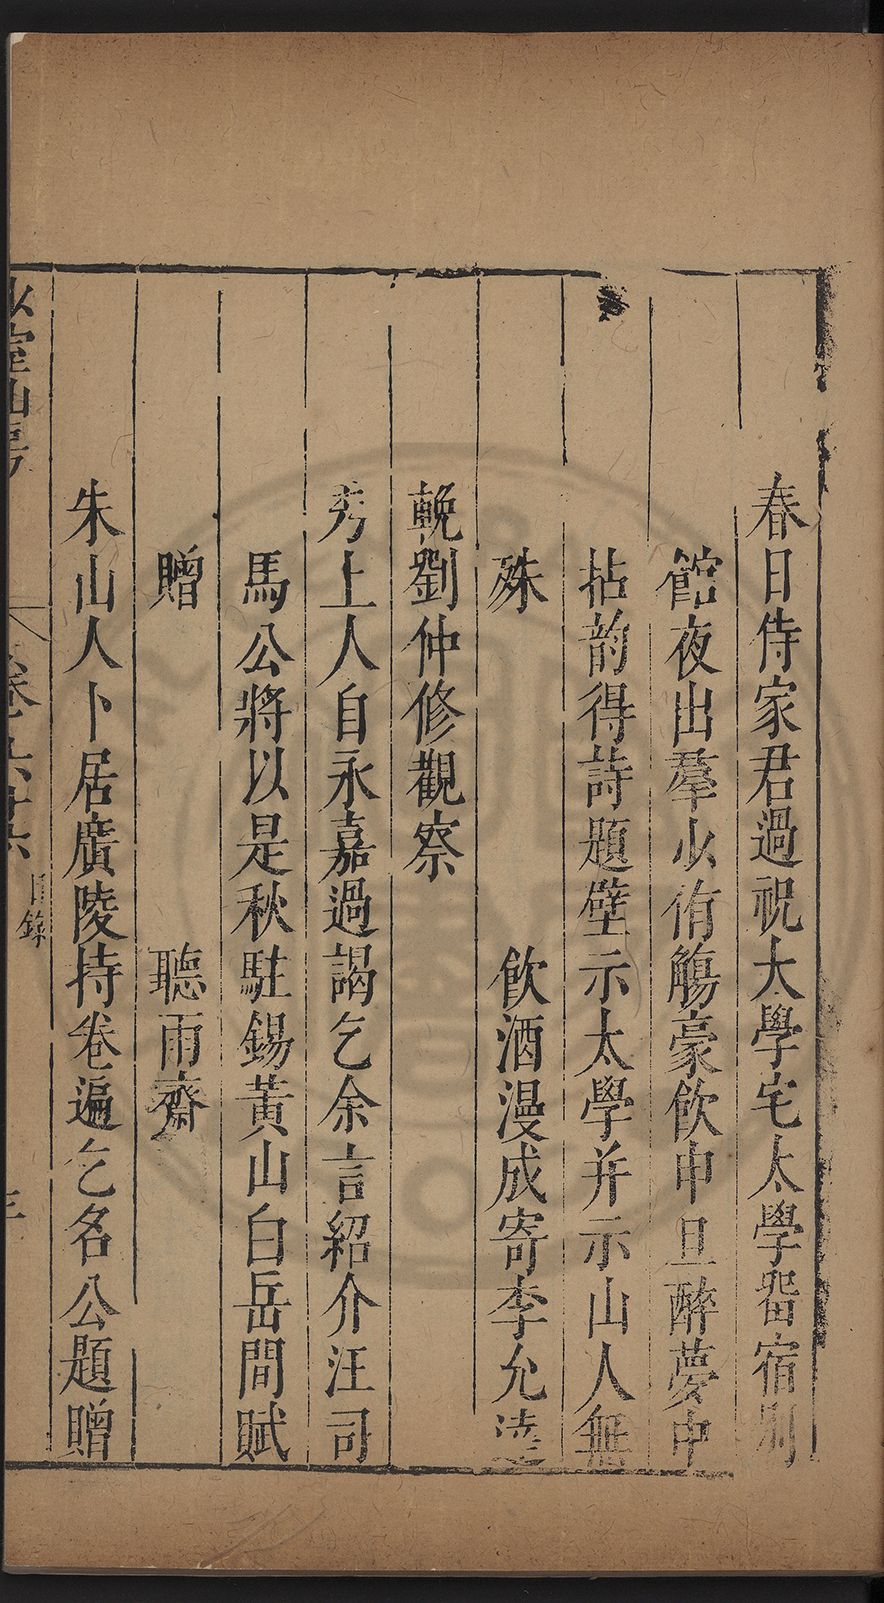 春日侍家君過祝大學宅太學畱宿别
館夜出羣少侑觴豪飲申旦醉夢中
拈韵得詩題壁示太學并示山人無
殊　飲酒漫成寄李允達
輓劉仲修觀察
秀上人自永嘉過謁乞余言紹介汪司
馬公將以是秋駐錫黃山白岳間賦
贈　聽雨齋
朱山人卜居廣陵持卷遍乞名公題贈
少室山房　卷之六十六　目錄　三